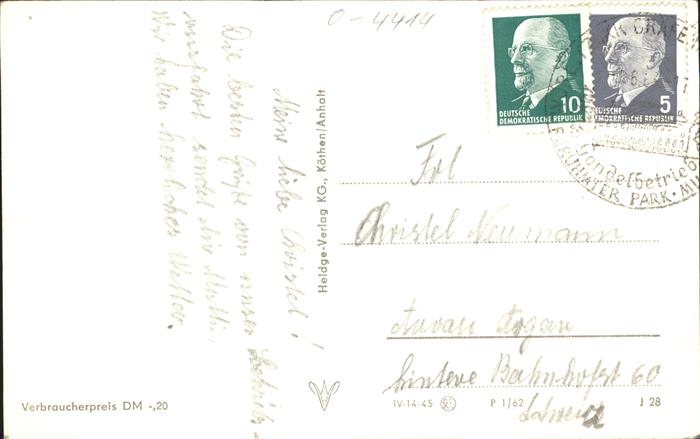 O-4414
Meine liebe Christel!
Die besten Grüße von unser Betriebs-
ausfahrt sendet dir Mutti.
Wir haben herrliches Wetter.
Heldge-Verlag KG., Köthen/Anhalt
10
DEUTSCHE
DEMOKRATISCHE REPUBLIK
5
DEUTSCHE
DEMOKRATISCHE REPUBLIK
Handelbetrieb
PARK
Frl
Christel Neumann
Aarau Argau
hintere Bahnhofst 60
Schweiz
Verbraucherpreis DM -,20
IV-14-45
P 1/62
J 28